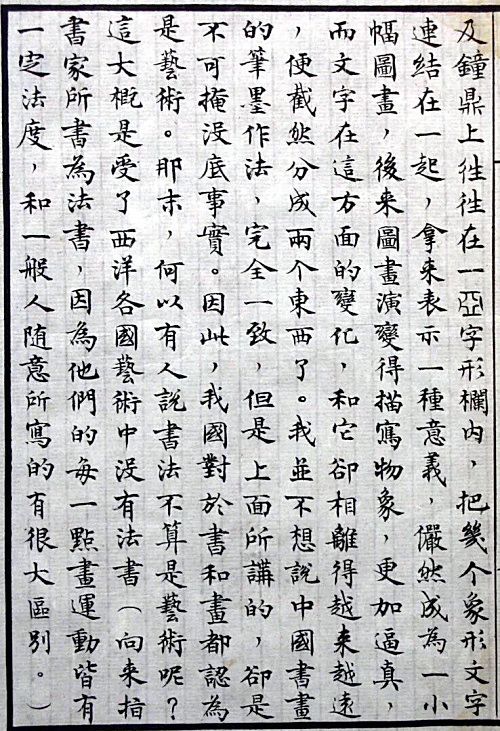 及鐘鼎上往往在一亞字形欄内，把幾个象形文字
連结在一起，拿来表示一種意義，儼然成為一小
幅圖畫，後来圖畫演變得描寫物象，更加逼真，
而文字在這方面的變化，和它卻相離得越来越遠
，便截然分成兩个東西了。我並不想說中國書畫
的筆墨作法，完全一致，但是上面所講的，卻是
不可掩没底事實。因此，我國對於書和畫都認為
是藝術。那末，何以有人說書法不算是藝術呢？
這大概是受了西洋各國藝術中没有法書（向来指
書家所書為法書，因為他們的每一點畫運動皆有
一定法度，和一般人随意所寫的有很大區别。）